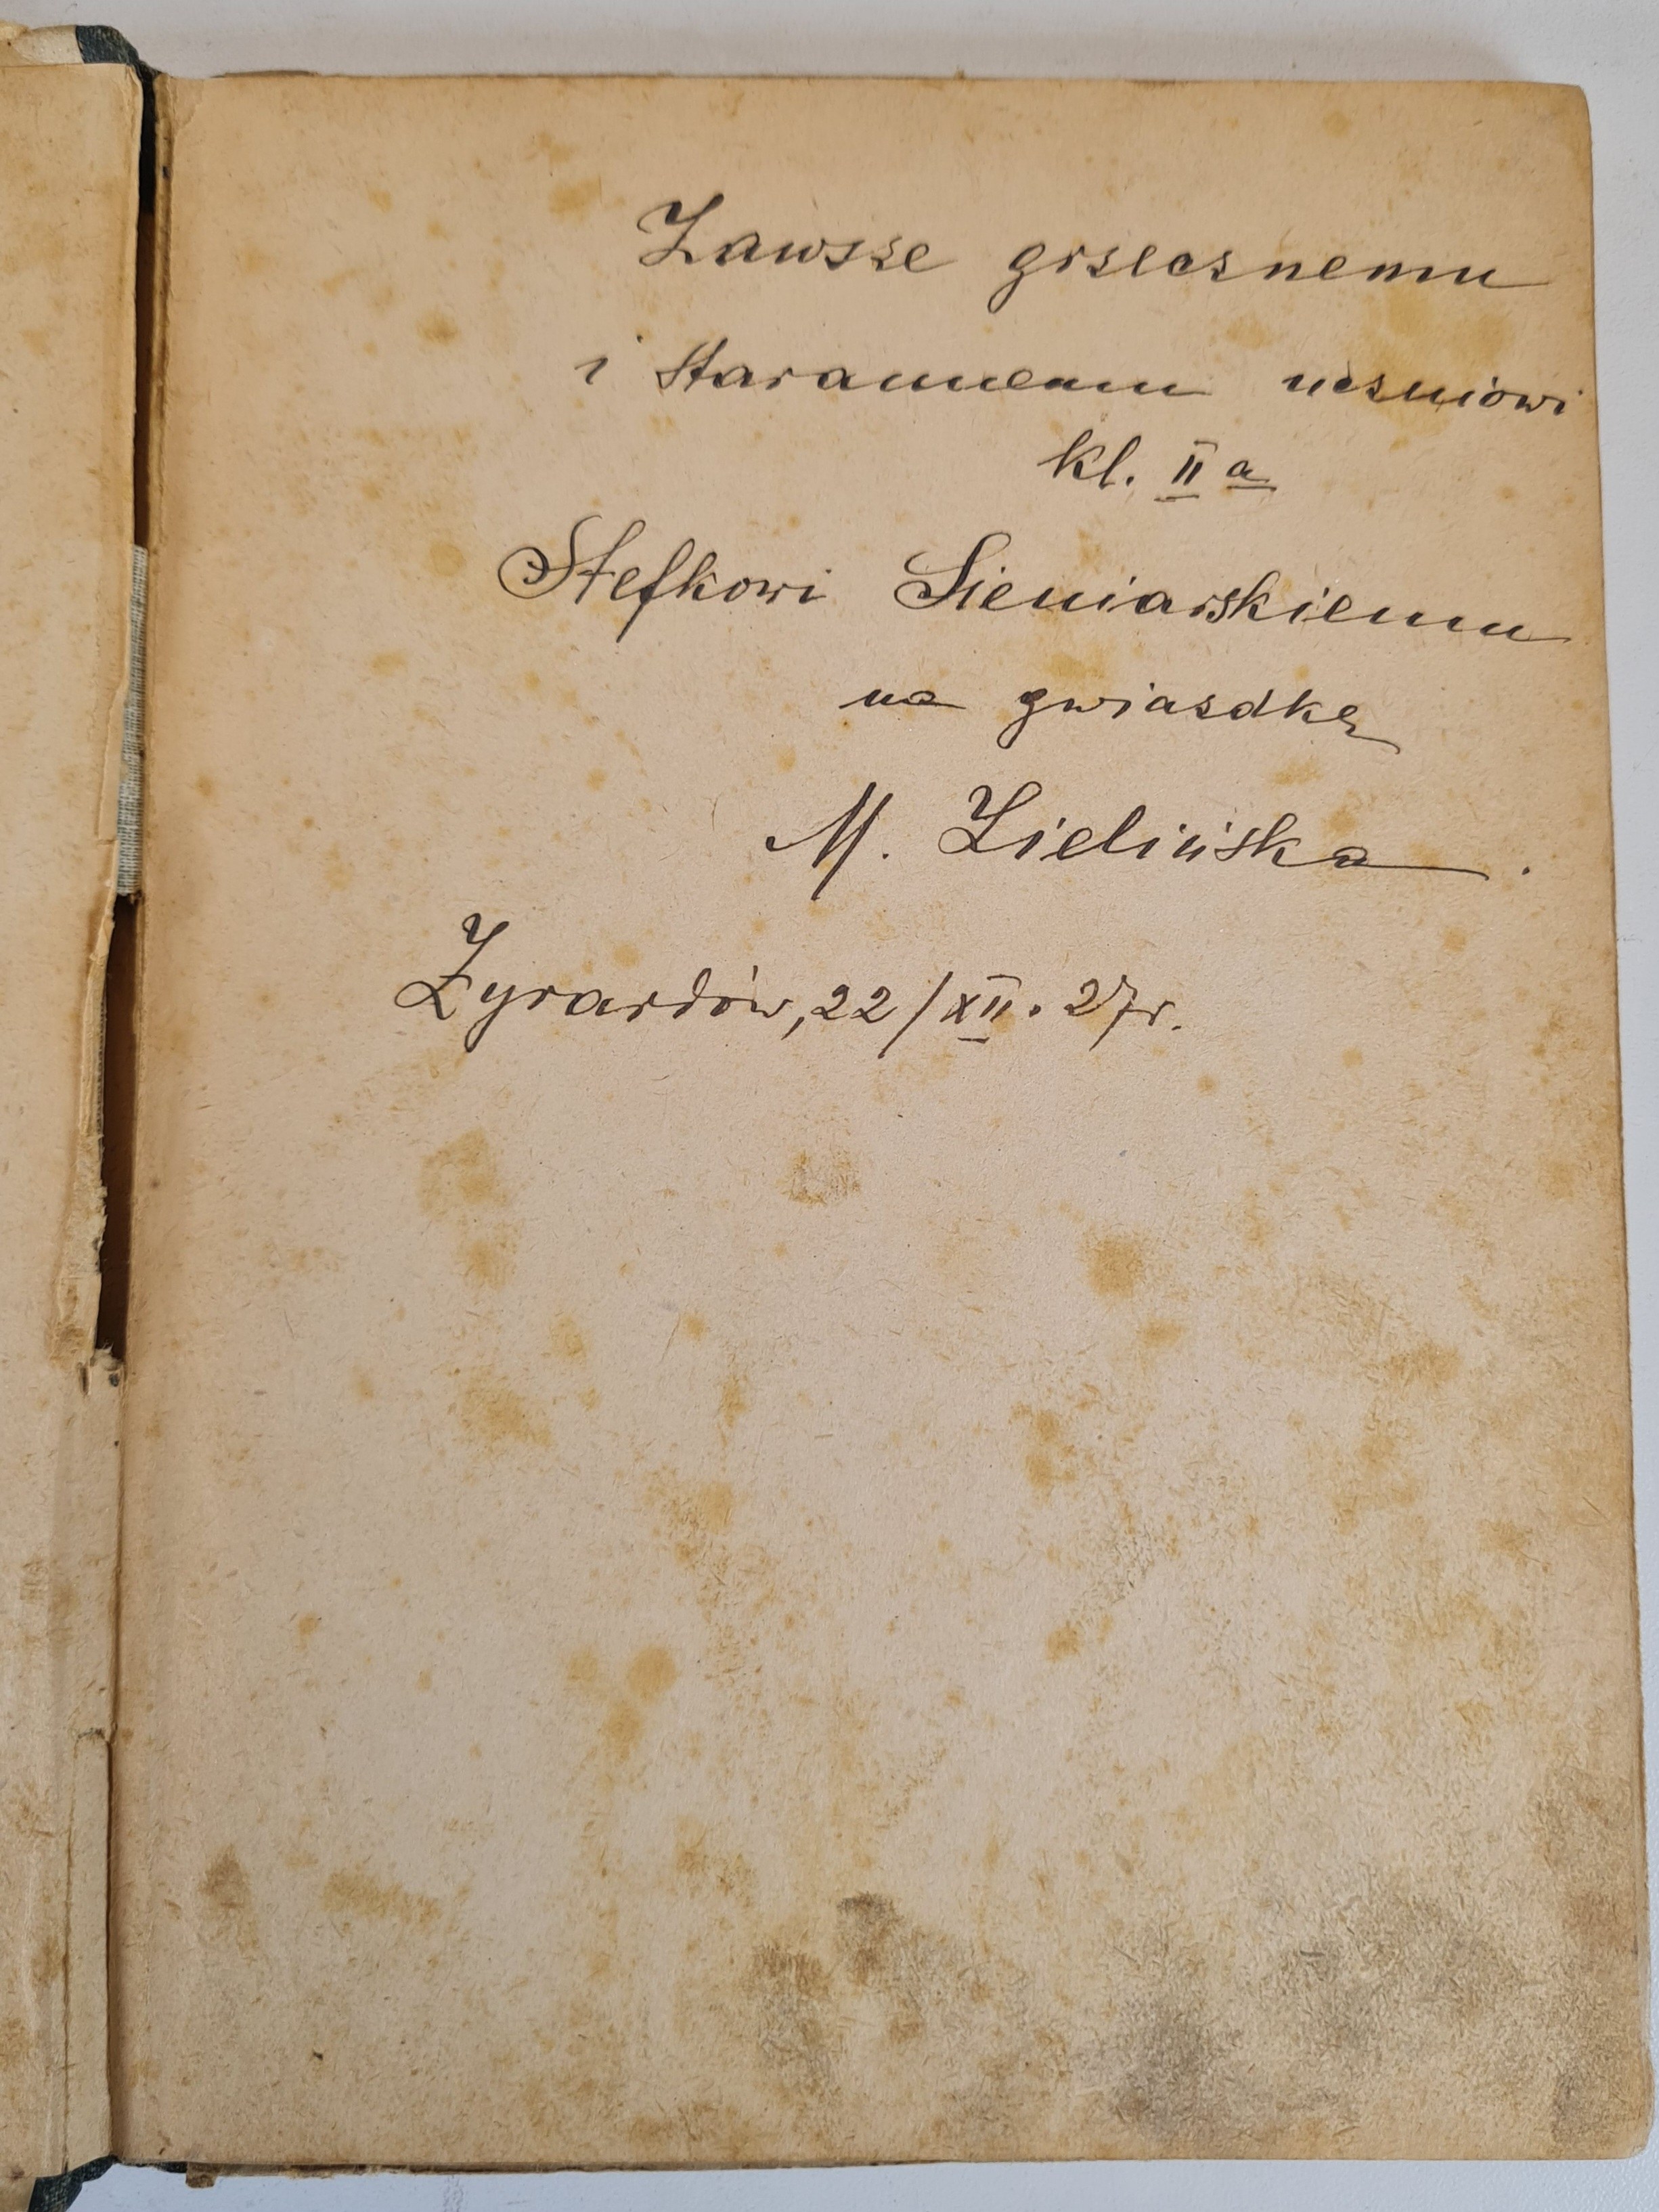 Zawsze grzecznemu
i starannemu uczniowi
kl. II a
Stefkowi Sieniarskiemu
na gwiazdkę
M. Zielińska.
Żyrardów, 22/XII. 27r.